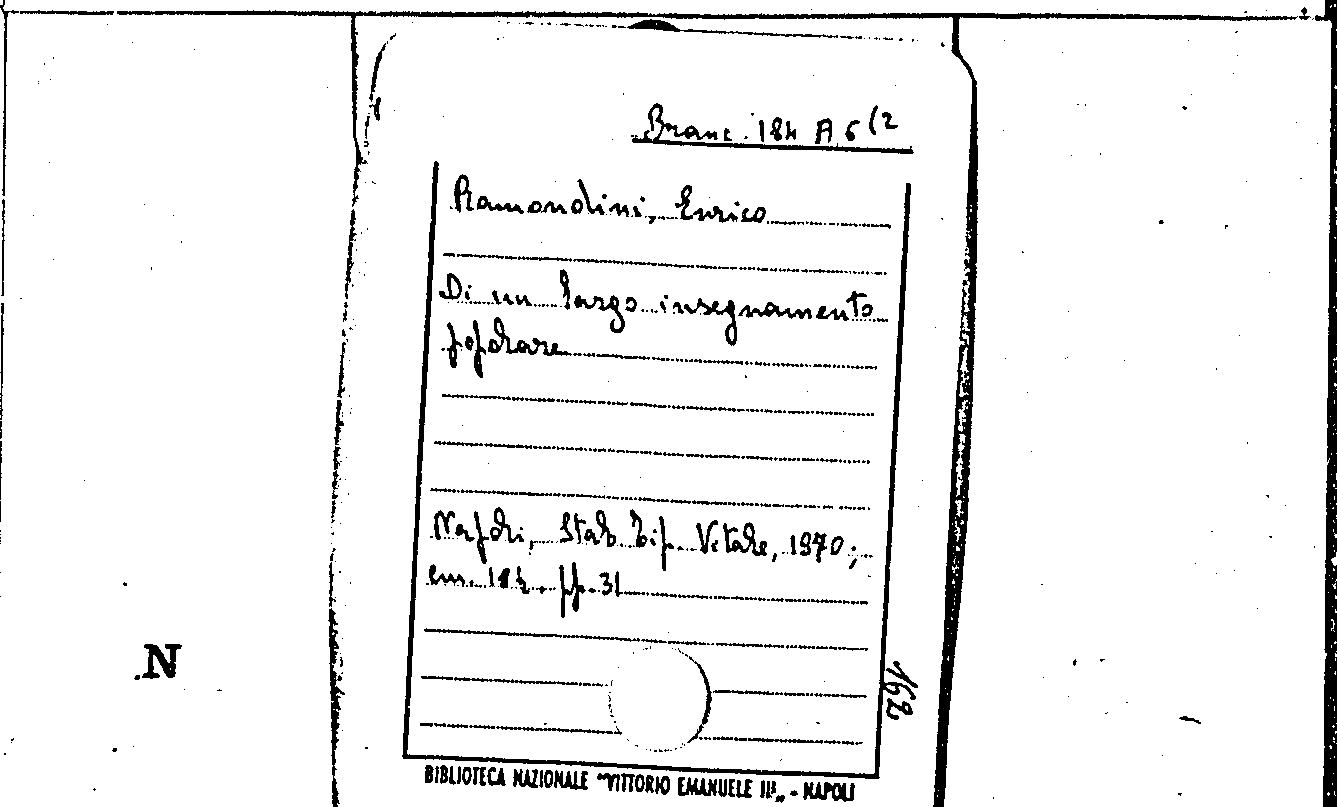 Branc. 184 A 6 (2
Ramondini, Enrico
Di un largo insegnamento
popolare
Napoli, Stab. Tip. Vitale, 1870;
cm. 18½. pp. 31
162
N
BIBLIOTECA NAZIONALE "VITTORIO EMANUELE III„ - NAPOLI